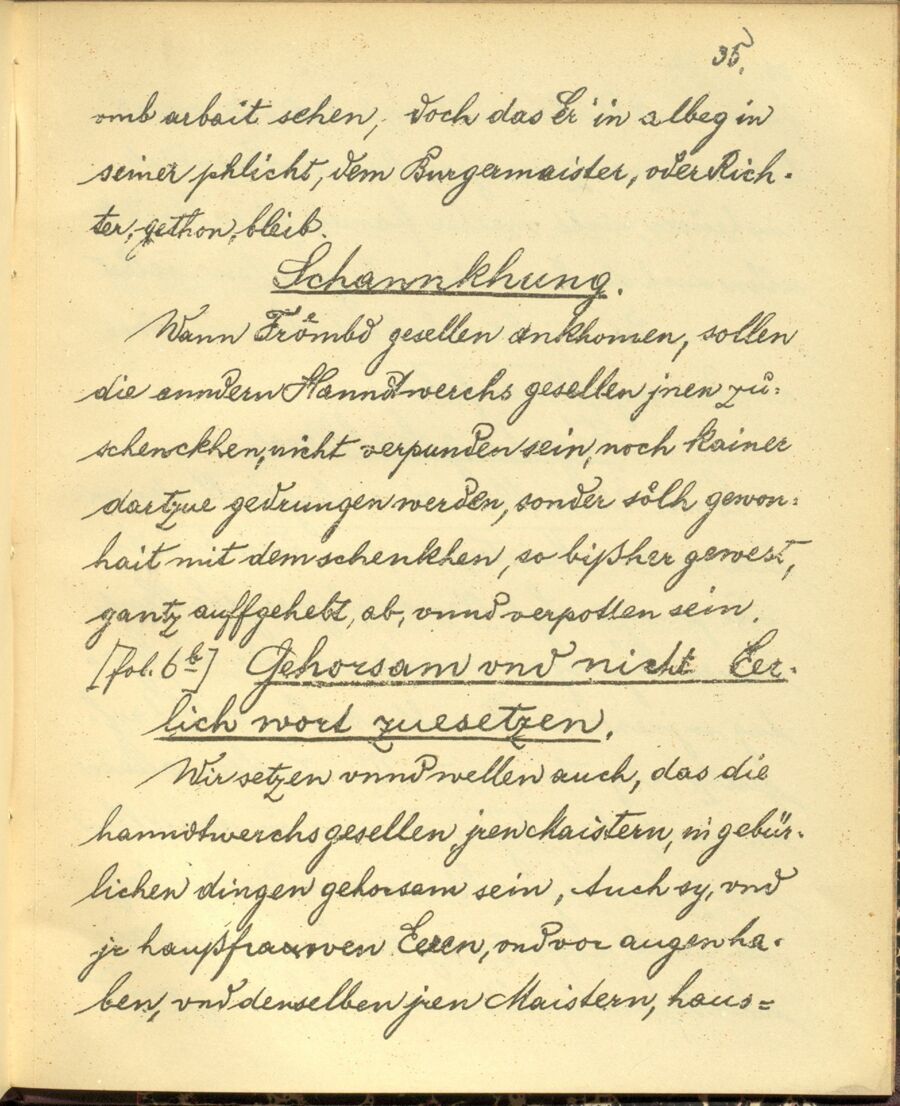 35.
vmb arbait sehen, doch das Er in albeg in
seiner phlicht, dem Burgermaister, oder Rich-
ter, gethon, bleib.
Schannkhung.
Wann Frömbd gesellen ankhomen, sollen
die anndern Hanndtwerchs gesellen jnen zu-
schenckhen, nicht verpunden sein, noch kainer
dartzue gedrungen werden, sonder sölh gewon-
hait mit dem schenkhen, so bißher gewest,
gantz auffgehebt, ab, vnnd verpotten sein.
[fol. 6b] Gehorsam vnd nicht Eer-
lich wort zuesetzen.
Wir setzen vnnd wellen auch, das die
hanndtwerchs gesellen jren Maistern, in gebür-
lichen dingen gehorsam sein, Auch sy, vnd
jr haußfrawen Eeren, vnd vor augen ha-
ben, vnd denselben jren Maistern, haus=